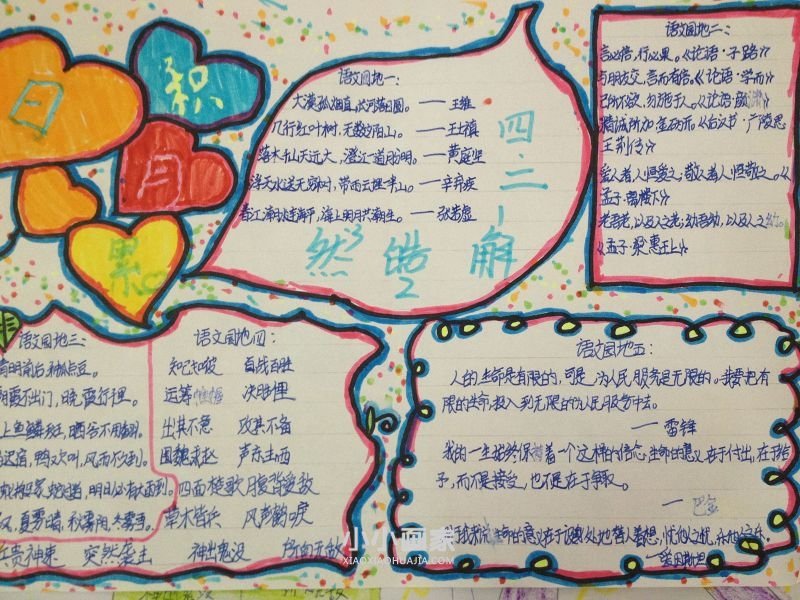 日
积
月
累
语文园地一:
大漠孤烟直,长河落日圆。——王维
几行红叶树,无数夕阳山。——王士禛
落木千山天远大,澄江一道月分明。——黄庭坚
浮天水送无穷树,带雨云埋一半山。——辛弃疾
春江潮水连海平,海上明月共潮生。——张若虚
四·二一
然 借 解
3
2
语文园地二:
言必信,行必果。《论语·子路》
与朋友交,言而有信。《论语·学而》
己所不欲,勿施于人。《论语·颜渊》
精诚所加,金石为开。《后汉书·广陵思
王荆传》
爱人者,人恒爱之;敬人者,人恒敬之。《
孟子·离娄下》
老吾老,以及人之老;幼吾幼,以及人之幼。
《孟子·梁惠王上》
语文园地三:
清明前后,种瓜点豆。
朝霞不出门,晚霞行千里。
上鱼鳞斑,晒谷不用翻。
迟宿,鸭欢叫,风雨不久到。
蛇过道,明日必有大雨到。
夏雾晴,秋雾阴,冬雾雪。
语文园地四:
知己知彼 百战百胜
运筹帷幄 决胜千里
出其不意 攻其不备
围魏救赵 声东击西
四面楚歌 腹背受敌
草木皆兵 风声鹤唳
兵贵神速 突然袭击 神出鬼没 所向无敌
语文园地五:
人的生命是有限的,可是,为人民服务是无限的。我要把有
限的生命,投入到无限的为人民服务中去。
——雷锋
我的一生始终保持着一个这样的信念:生命的意义在于付出,在于给
予,而不是接受,也不是在于争取。
——巴金
生命的意义在于设身处地替人着想,忧他人之忧,乐他人之乐。
——爱因斯坦
小小画家
XIAOXIAOHUAJIA.COM